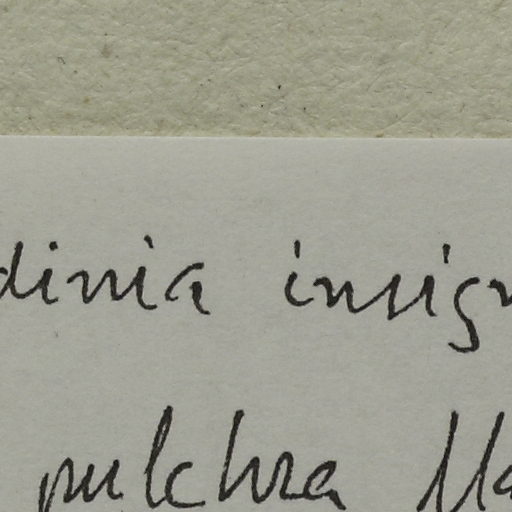 dinia insign
pulchra